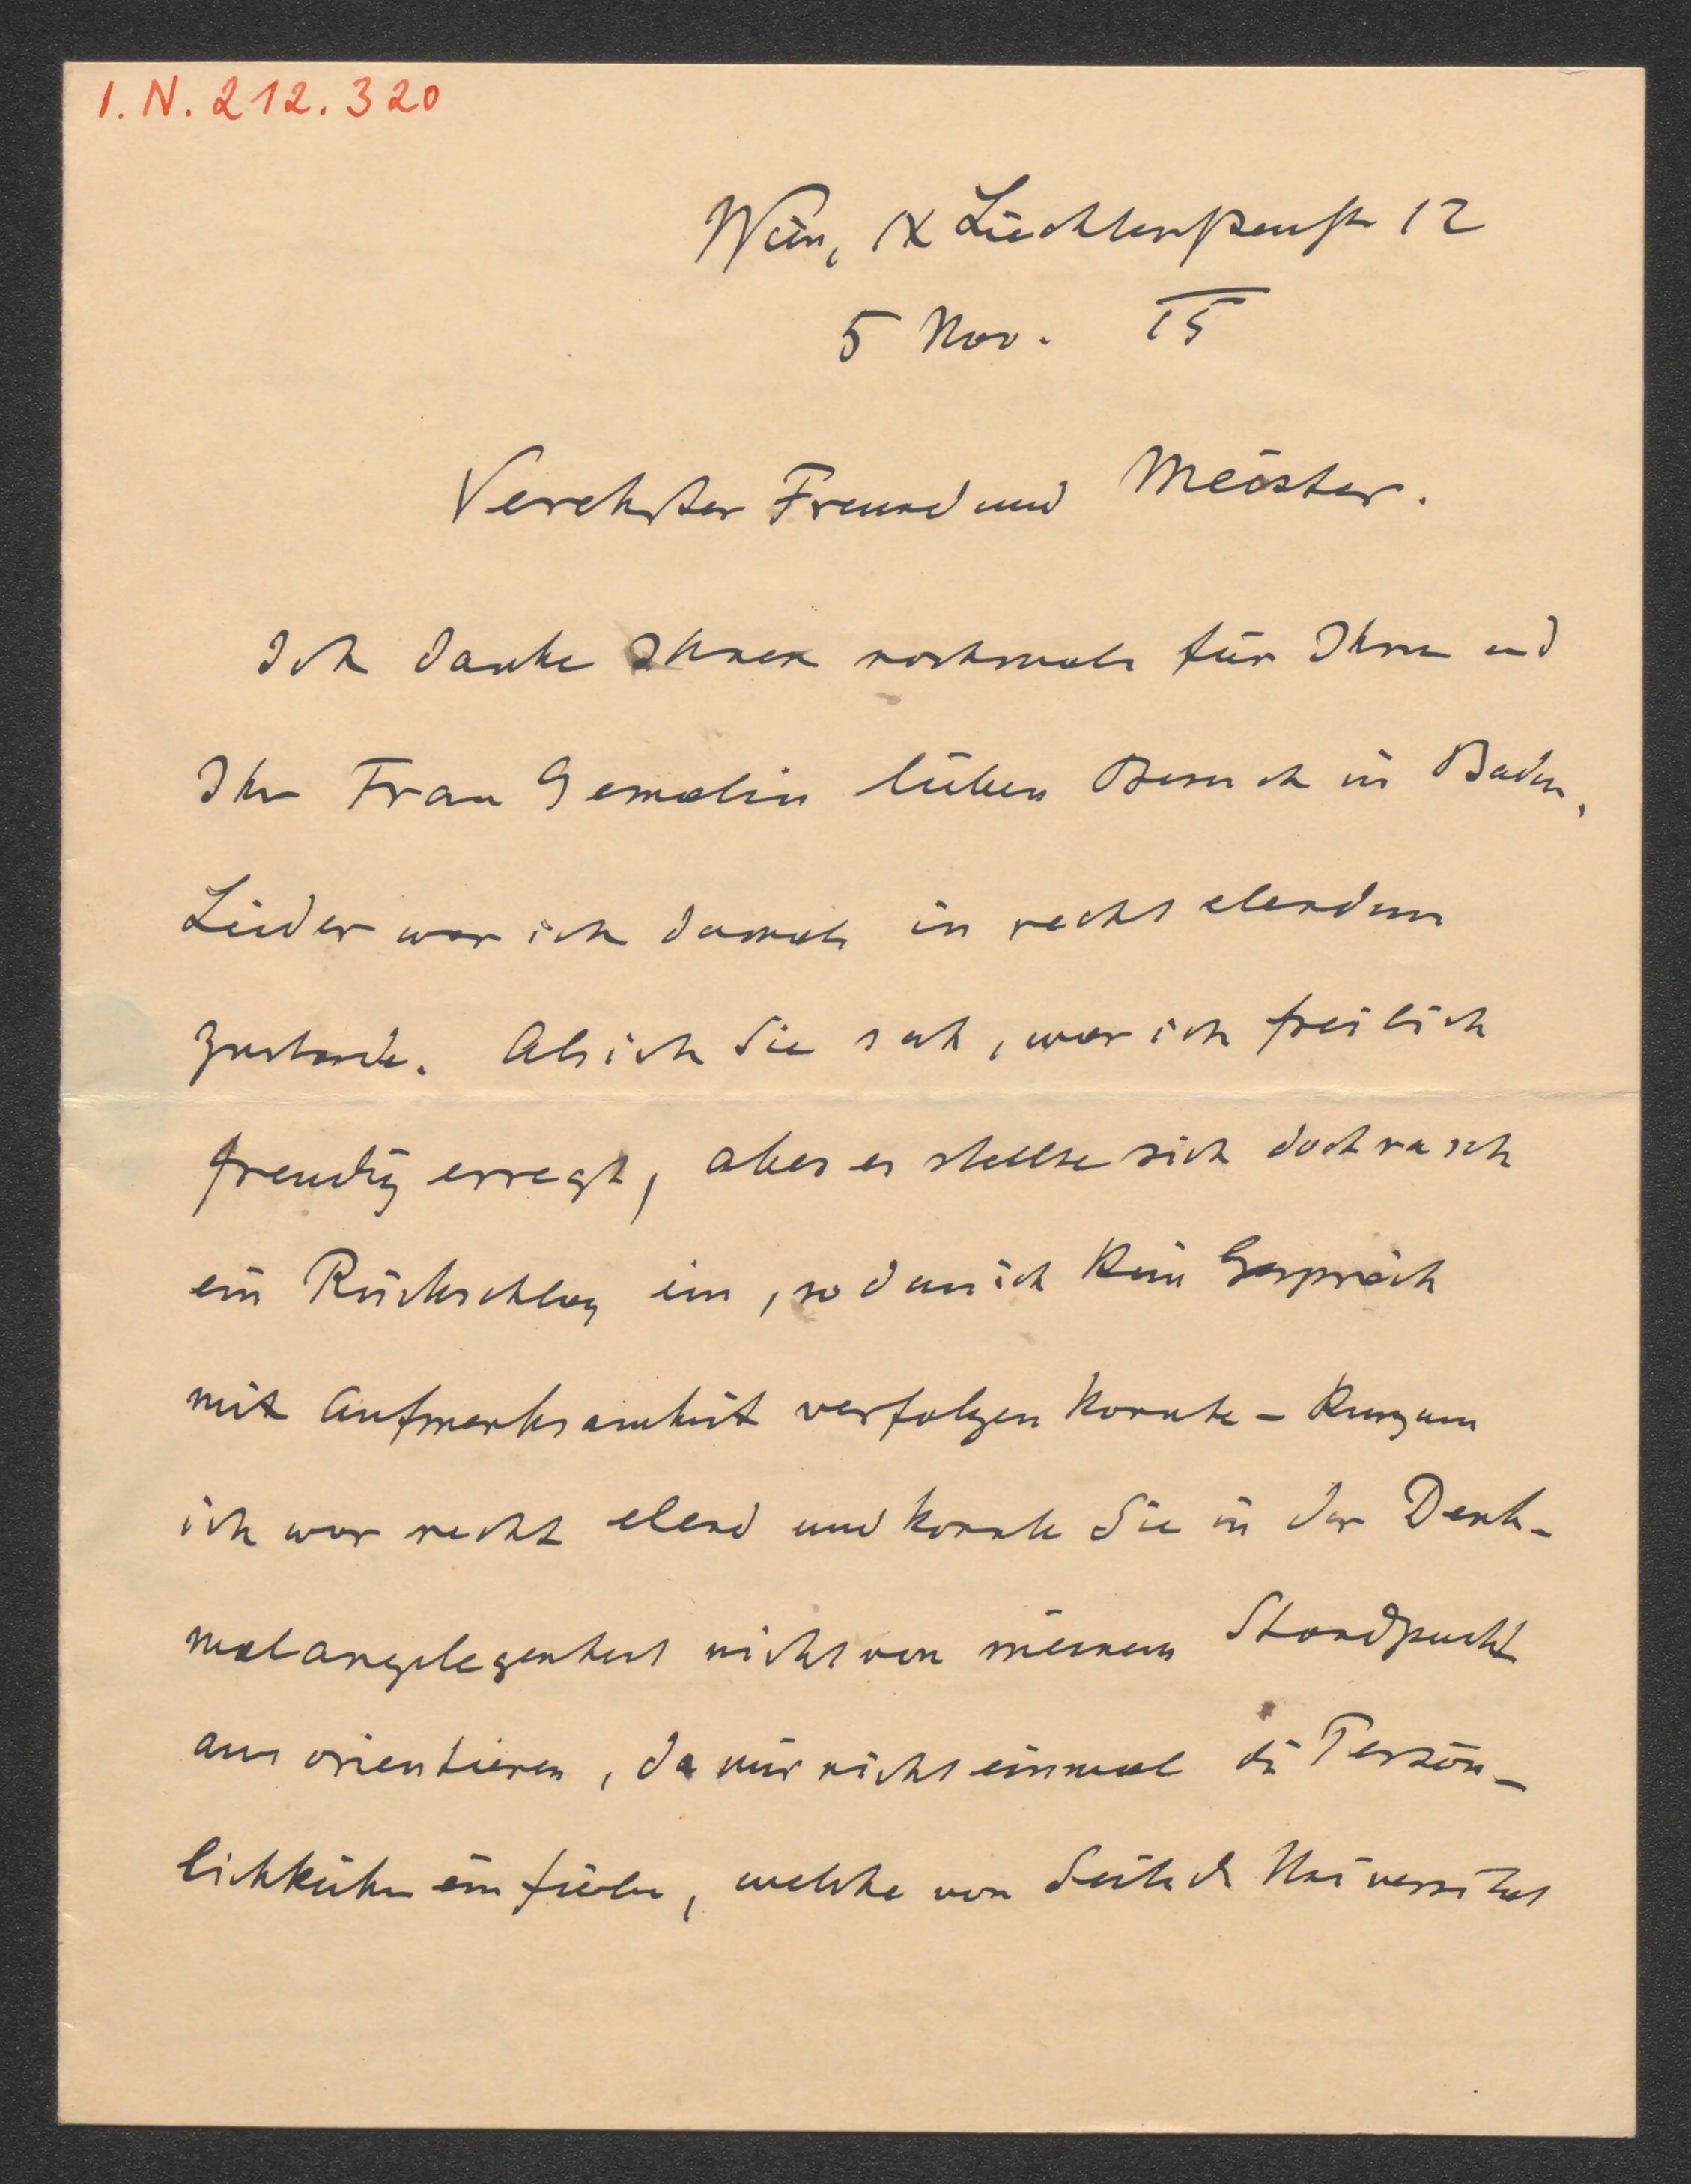 I.N. 212.320
Wien, IX Liechtensteinstr 12
5 Nov. 15
Verehrter Freund und Meister.
Ich danke Ihnen nochmals für Ihren und
Ihrer Frau Gemalin lieben Besuch in Baden.
Leider war ich damals in recht elendem
Zustande. Als ich Sie sah, war ich freilich
freudig erregt, aber es stellte sich doch rasch
ein Rückschlag ein, so dass ich kein Gespräch
mit Aufmerksamkeit verfolgen konnte – kurzum
ich war recht elend und konnte Sie in der Denk-
malangelegenheit nicht von meinem Standpunkt
aus orientieren, da mir nicht einmal die Persön-
lichkeiten einfielen, welche von Seite der Universität